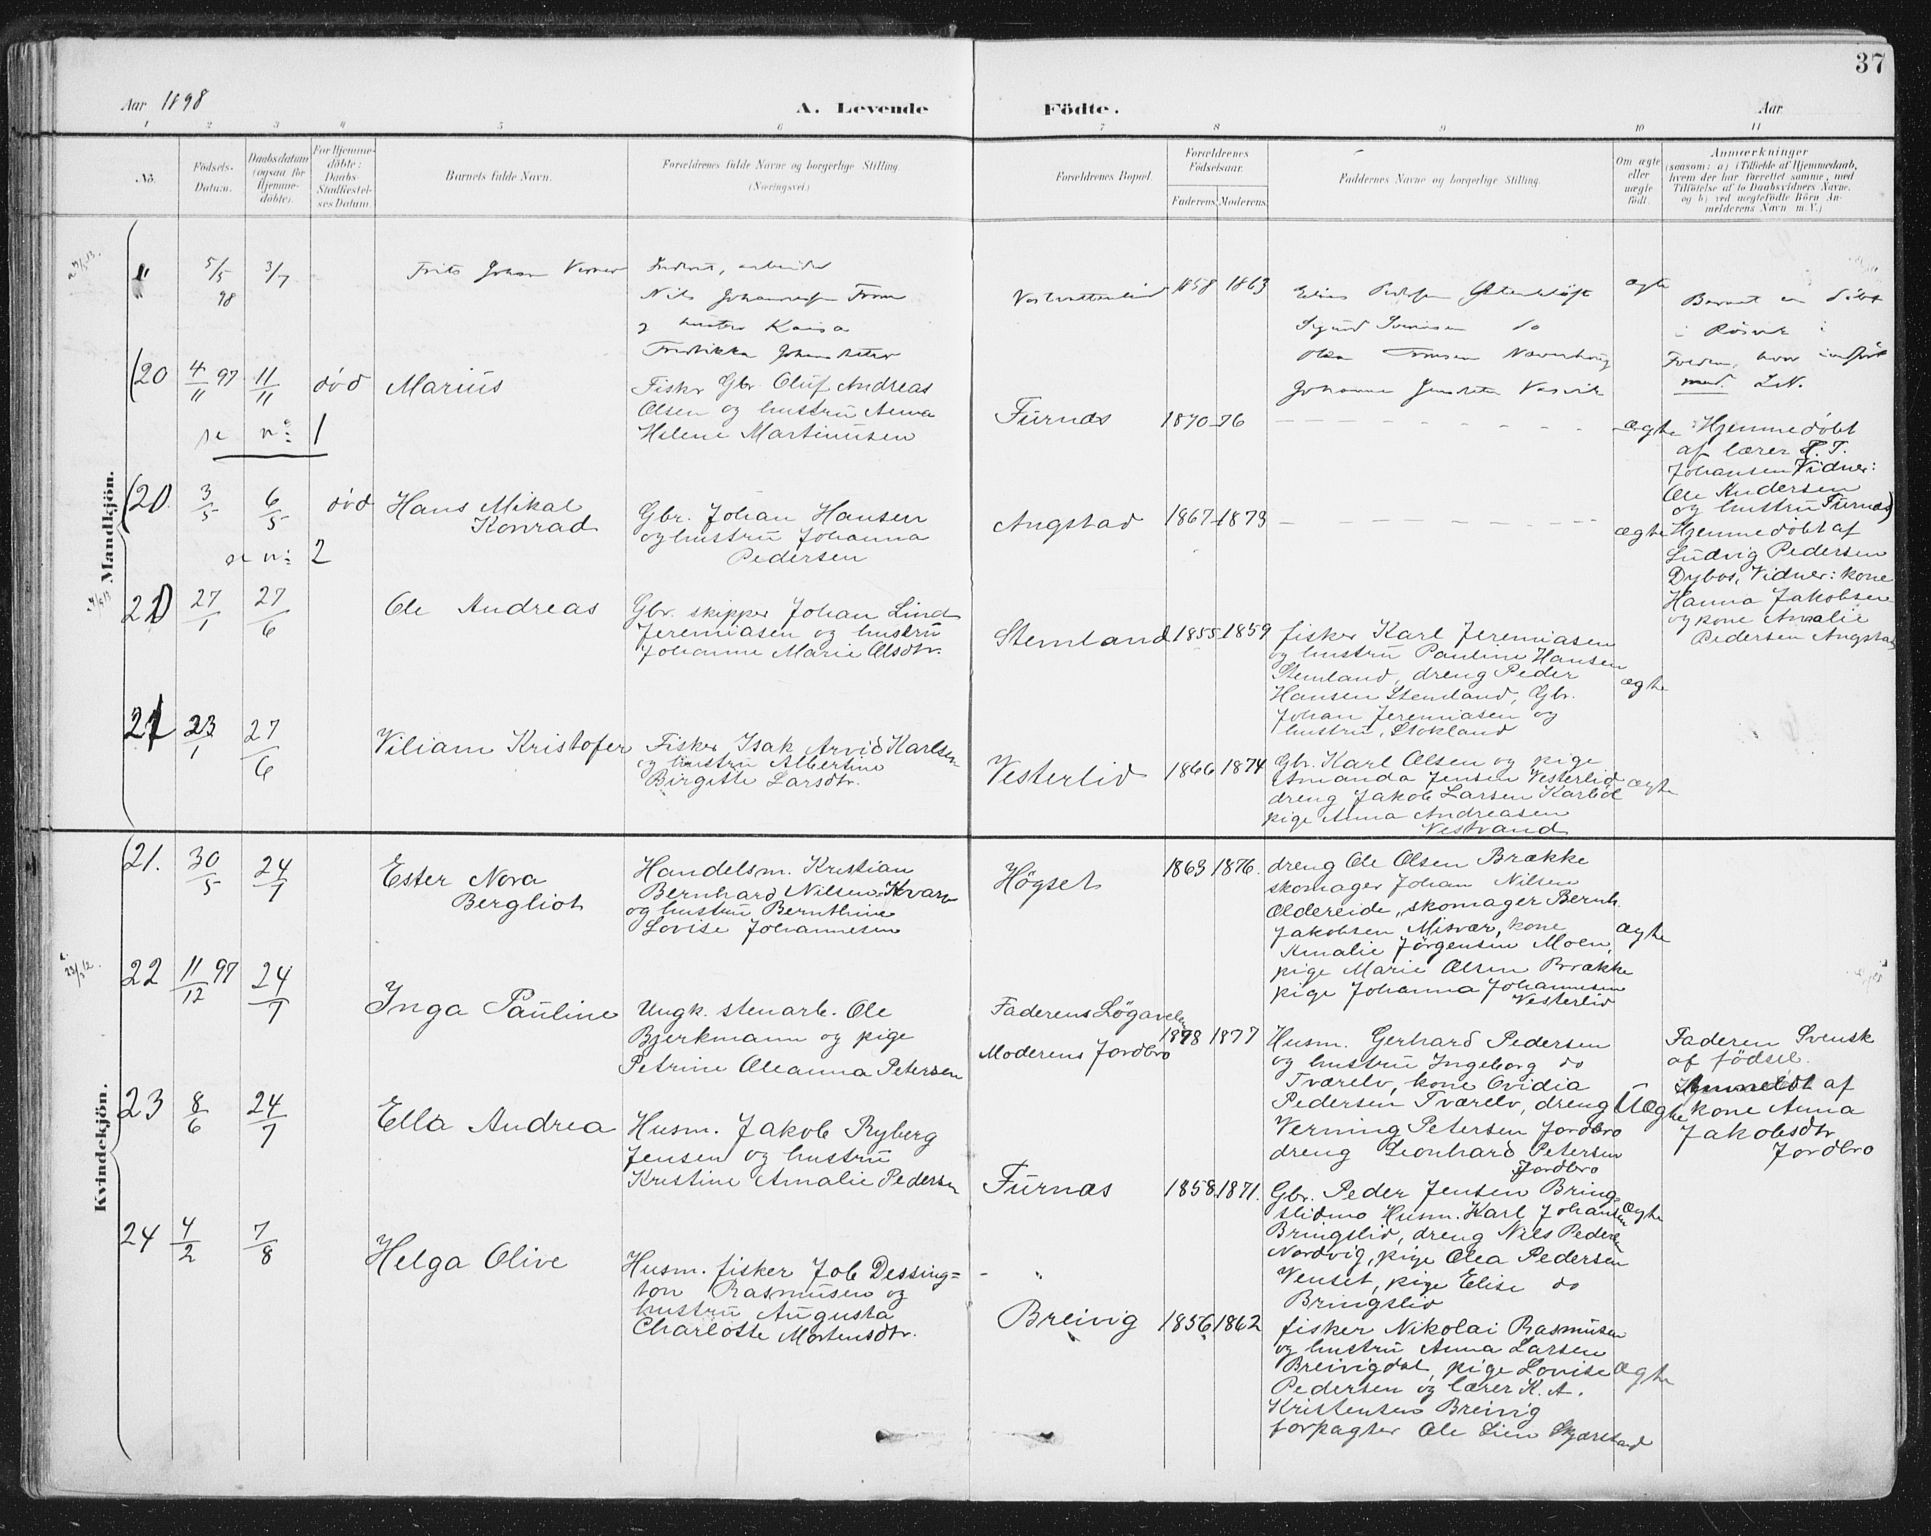 37
Aar 1898
A. Levende
Födte.
Aar
1 2 3 4 5 6 7 8 9 10 11
No.
Födsels-
Datum.
Daabsdatum
(ogsaa for
Hjemme-
döbte).
For Hjemme-
döbte:
Daabs-
Stadfæstel-
ses Datum.
Barnets fulde Navn.
Forældrenes fulde Navne og borgerlige Stilling.
(Næringsvei)
Forældrenes Bopæl.
Forældrenes
Födselsaar.
Faderens.
Moderens.
Faddernes Navne og borgerlige Stilling.
Om ægte
eller
uægte
födt.
Anmærkninger
(saasom: a) i Tilfælde af Hjemmedaab,
hvem der har forrettet samme, med
Tilföielse af to Daabsvidners Navne,
og b) ved uægtefödte Börn An-
melderens Navn m. V.)
Mandkjön.
5/5 98
3/7
Frits Johan Verner
Nils Johannesen From
og hustru Kaisa
Fredrikka
1858 1863
Elias
ægte
Barnet er döbt
i Røsvik i
Folden, hvor indført
med L.N.
(20
4/11 97
11/11
død
Marius
Fisker Gbr. Oluf Andreas
Olsen og hustru Anna
Helene Martinusen
se no: 1
Furnæs
1870 - 76
ægte
Hjemmedøbt
af lærer T. T.
Johansen Vidner:
Ole Andersen
og hustru Furnæs)
(20.
3/5
6/5
død
Hans Mikal
Konrad
Gbr. Johan Hansen
og hustru Johanna
Pedersen
se no: 2
Angstad
1867 - 1873
ægte
Hjemmedøbt af
Ludvig Pedersen
Dybos, Vidner: kone
Hanna Jakobsen
og kone Amalie
Pedersen Angstad
20
27/1
27/6
Ole Andreas
Gbr. skipper Johan Lind
Jeremiasen og hustru
Johanne Marie Olsdtr.
Stemland
1855 1859
fisker Karl Jeremiasen
og hustru Pauline Hansen
Stemland, dreng Peder
Hansen Stemland, Gbr.
Johan Jeremiasen og
hustru, Stokland
ægte
21
23/1
27/6
Viliam Kristofer
Fisker Isak Arvid Karlsen
og hustru Albertine
Birgitte Larsdtr.
Vesterlid
1866 1874
Gbr. Karl Olsen og pige
Amanda Jensen Vesterlid,
dreng Jakob Larsen Karlböl
pige Anna Andreasen
Vestvand
ægte
Kvindekjön.
21.
30/5
24/7
Ester Nora
Bergliot
Handelsm. Kristian
Bernhard Nilsen Kvarv
og hustru Bernthine
Lovise Johannesen
Högset
1863 1876.
dreng Ole Olsen Brække
skomager Johan Nilsen
Oldereide, skomager Bernh.
Jakobsen Misvær, kone
Amalie Jørgensen Moen,
pige Marie Olsen Brække
pige Johanna Johannesen
Vesterlid
ægte
22
11/12 97
24/7
Inga Pauline
Ungk. stenarb. Ole
Bjerkmann og pige
Petrine Oleanna Petersen
Faderens Løgavelen
Moderens Jordbro
1878 1877
Husm. Gerhard Pedersen
og hustru Ingeborg do
Tværelv, kone Ovidia
Pedersen Tværelv, dreng
Verning Petersen Jordbro
dreng Leonhard Petersen
Jordbro
Uægte
Faderen Svensk
af födsel.
Anmeldt af
kone Anna
Jakobsdtr
Jordbro
23
8/6
24/7
Ella Andrea
Husm. Jakob Ryberg
Jensen og hustru
Kristine Amalie Pedersen
Furnæs
1858. 1871.
Gbr. Peder Jensen Bring-
slidmo Husm. Karl Johansen
Bringslid, dreng Nils Pedersen
Nordvig, pige Olea Pedersen
Venset, pige Elise do
Bringslid
ægte
24
4/2
7/8
Helga Olive
Husm. fisker Job Dessing=
ton Rasmusen og
hustru Augusta
Charlotte Mortensdtr.
Breivig
1856 1862
fisker Nikolai Rasmusen
og hustru Anna Larsen
Breivigdal, pige Lovise
Pedersen og lærer K. A.
Kristensen Breivig
forpagter Ole Lien Skjærstad
ægte